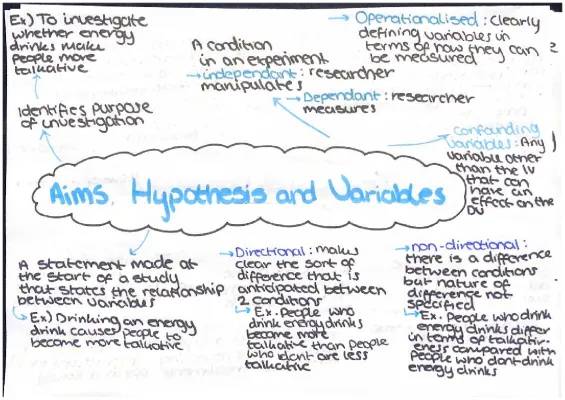 Ex) To investigate
whether energy
drinks make
people more
talkative
Identifies purpose
of investigation
A condition
in an experiment
→ independant: researcher
manipulates
→ Dependant: researcher
measures
→ Operationalised: clearly
defining variables in
terms of how they can
be measured
confounding
variables: Any
variable other
than the IV
that can
have an
effect on the
DV
Aims, Hypothesis and Variables
A statement made at
the start of a study
that states the relationship
between variables
↳ Ex) Drinking an energy
drink causes people to
become more talkative
→ Directional: makes
clear the sort of
difference that is
anticipated between
2 conditions
↳ Ex. People who
drink energy drinks
become more
talkative than people
who dont are less
talkative
→ non-directional:
there is a difference
between conditions
but nature of
difference not
specified
↳ Ex. People who drink
energy drinks differ
in terms of talkativ-
eness compared with
people who dont drink
energy drinks